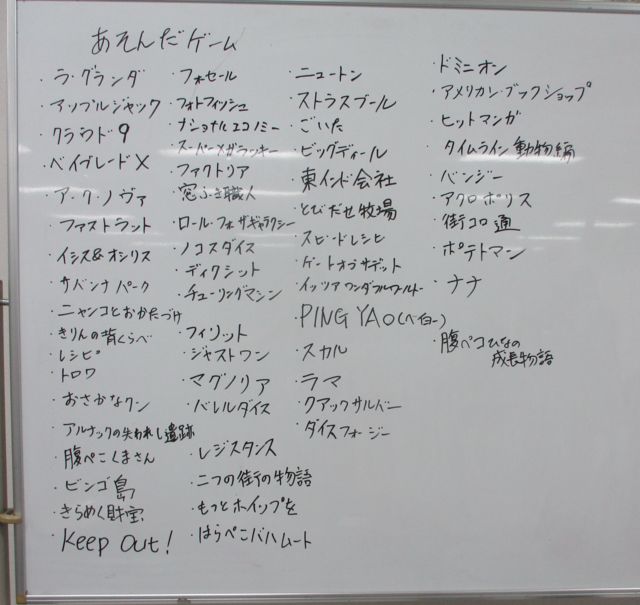 あそんだゲーム
・ラ・グランダ
・アップルジャック
・クラウド9
・ベイブレードX
・アーク・ノヴァ
・ファストラント
・イシス&オシリス
・サバンナパーク
・ニャンコとおかたづけ
・きりんの背くらべ
・レシピ
・トロワ
・おさかなクン
・アルナックの失われし遺跡
・腹ぺこくまさん
・ビンゴ島
・きらめく財宝
・Keep Out!
・フォセール
・フォトフィッシュ
・ナショナルエコノミー
・スーパーメガラッキー
・ファクトリア
・窓ふき職人
・ロール・フォー・ザギャラクシー
・ノコスダイス
・ディクシット
・チューリングマシン
・フィリット
・ジャストワン
・マグノリア
・バレルダイス
・レジスタンス
・二つの街の物語
・もっとホイップを
・はらぺこバハムート
・ニュートン
・ストラスブール
・ごいた
・ビッグディール
・東インド会社
・とびだせ牧場
・スピードレシピ
・ゲートオブサデット
・イッツアワンダフルワールド
・PING YAO(ペイヨー)
・スカル
・ラマ
・クアックサルバー
・ダイスフォージ
・ドミニオン
・アメリカン・ブックショップ
・ヒットマンガ
・タイムライン動物編
・バンジー
・アクロポリス
・街コロ通
・ポテトマン
・ナナ
・腹ペコひなの
成長物語